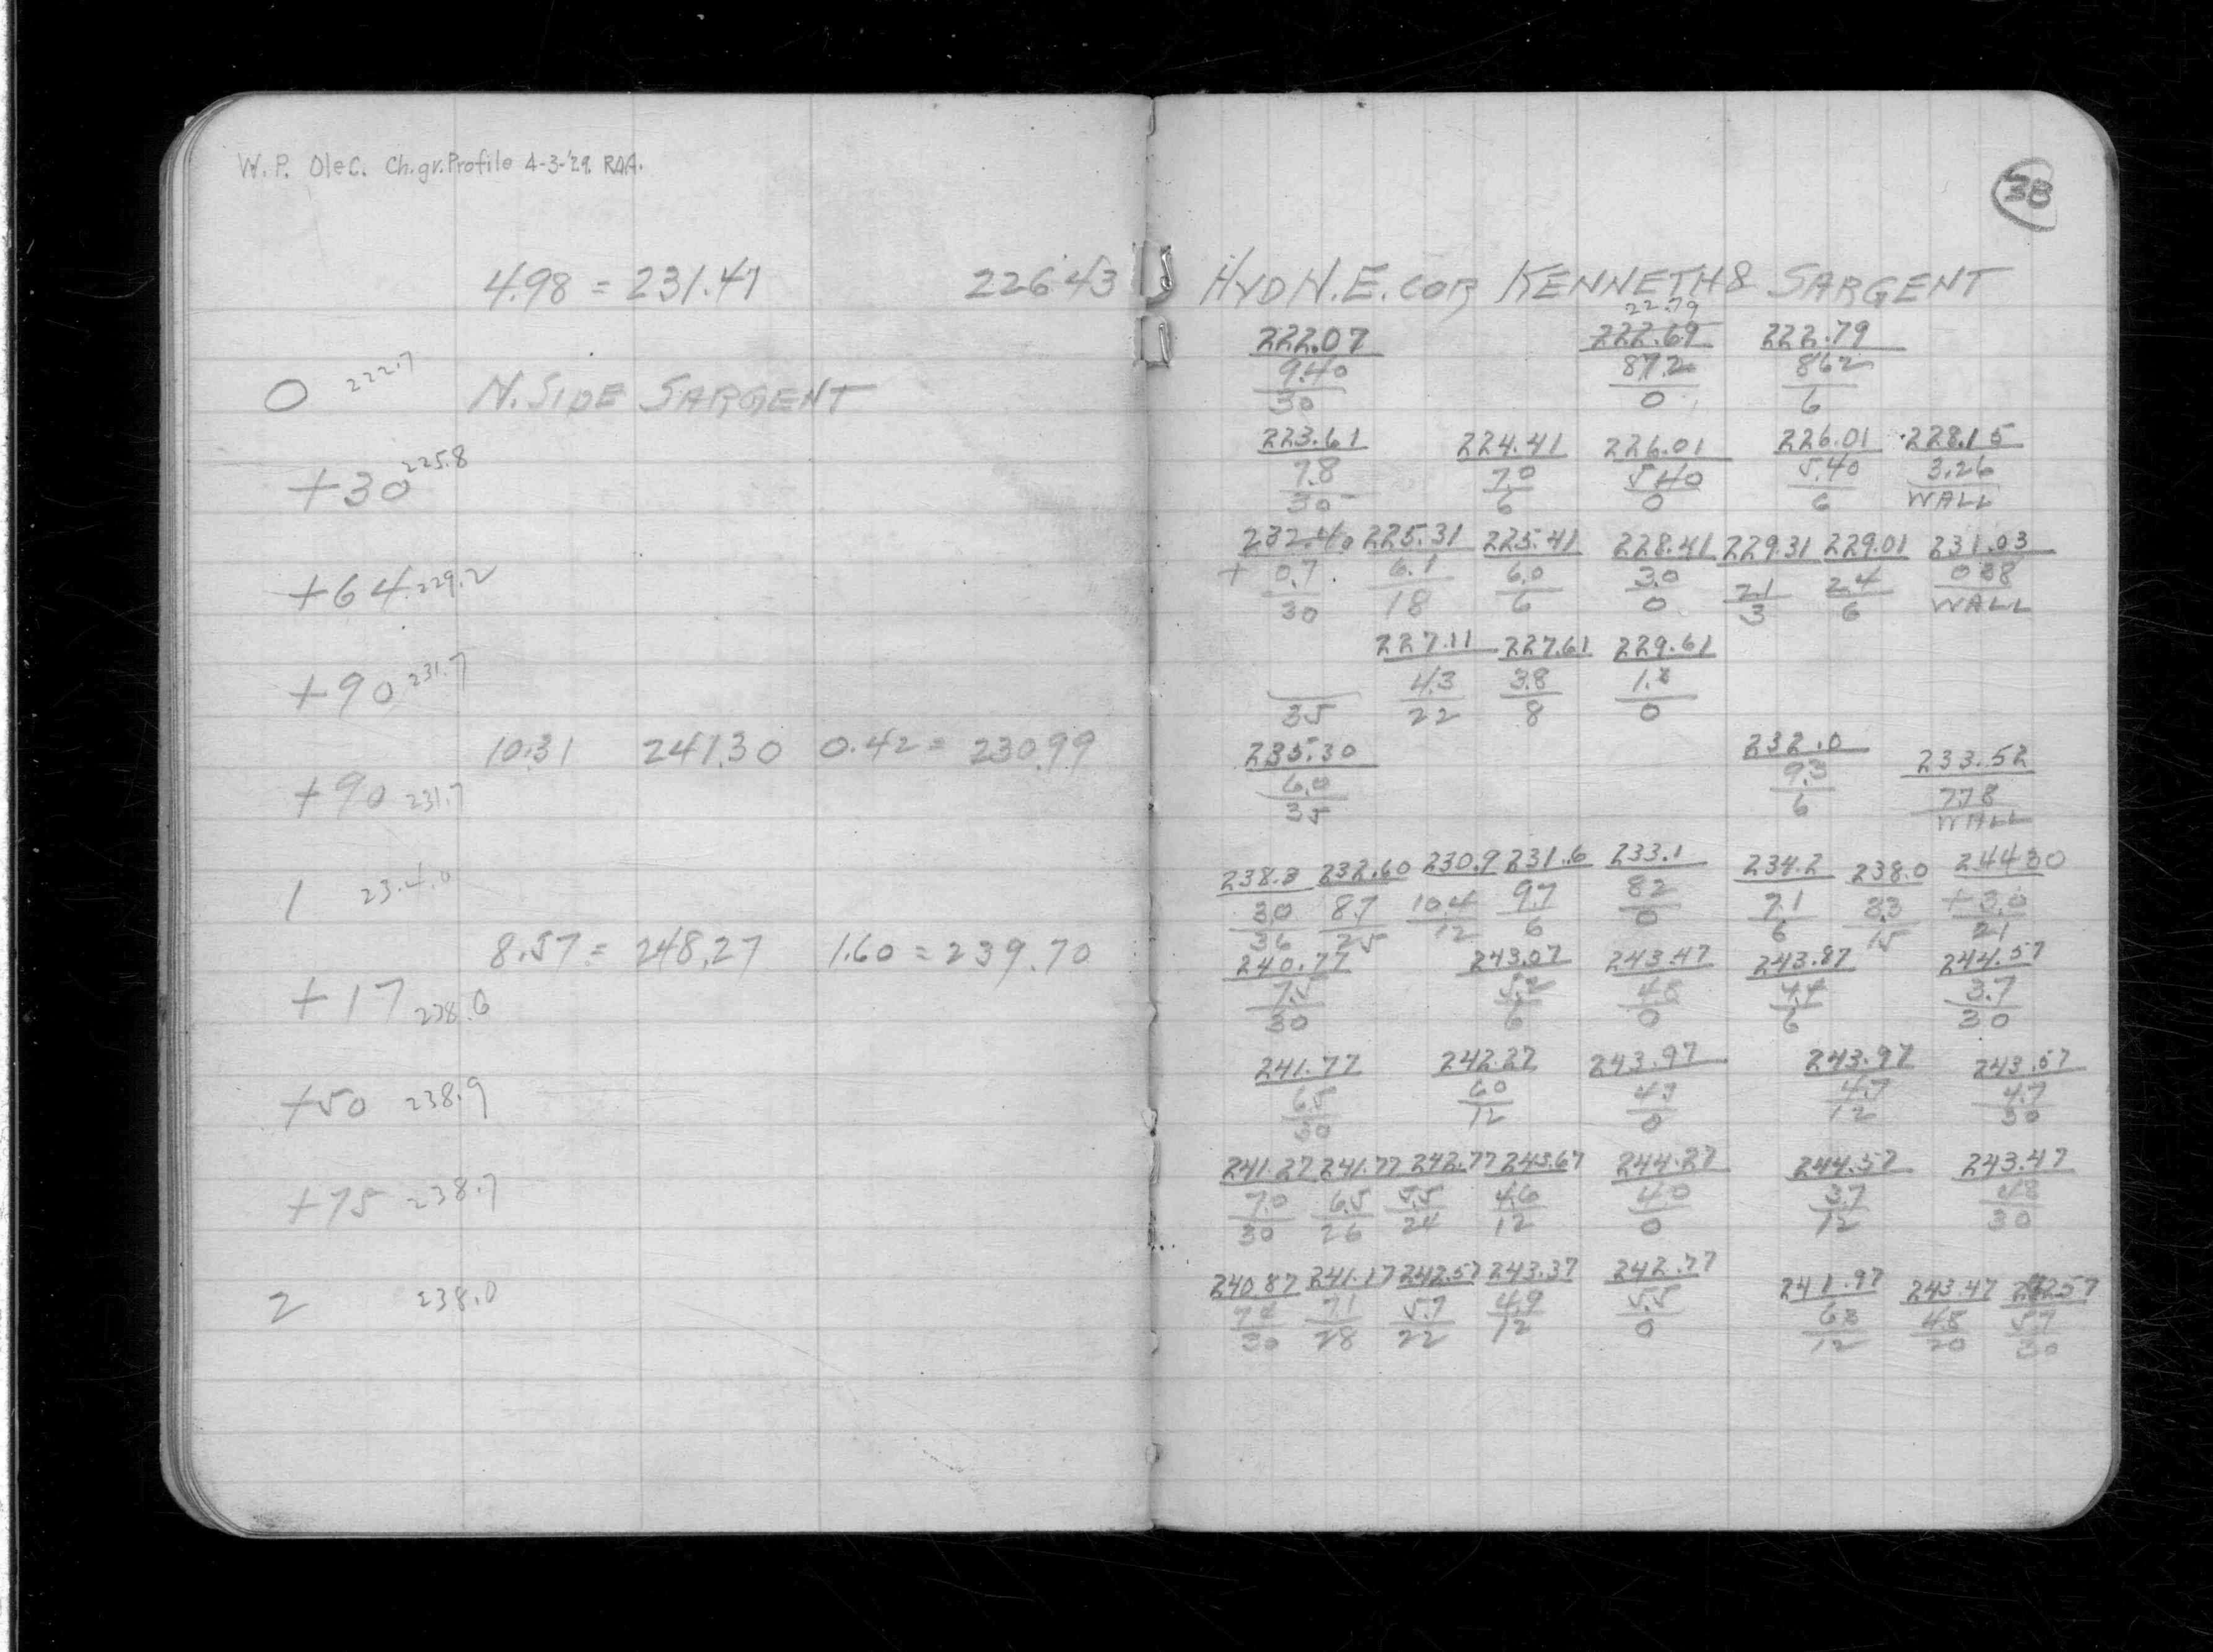 W. P. Ole C. Ch.gr. Profile 4-3-'29. RDA.
38
4.98 = 231.41 226.43 HYD N.E. COR KENNETH & SARGENT
22.79
222.07 222.69 222.79
0 222.7 N. SIDE SARGENT 9.40 8.72 8.62
30 0 6
223.61 224.41 226.01 226.01 228.15
+30 225.8 7.8 7.0 5.40 5.40 3.26
30 6 0 6 WALL
232.40 225.31 225.41 228.41 229.31 229.01 231.03
+64 229.2 + 0.7 6.1 6.0 3.0 2.1 2.4 0.38
30 18 6 0 3 6 WALL
227.11 227.61 229.61
+90 231.7 4.3 3.8 1.8
35 22 8 0
10.31 241.30 0.42 = 230.99 235.30 232.0 233.52
+90 231.7 6.0 9.3 7.78
35 6 WALL
238.3 232.60 230.9 231.6 233.1 234.2 238.0 244.30
1 234.0 3.0 8.7 10.4 9.7 8.2 7.1 3.3 +3.0
36 25 12 6 0 6 15 21
8.57 = 248.27 1.60 = 239.70 240.77 243.07 243.47 243.87 244.57
+17 238.6 7.5 5.2 4.8 4.4 3.7
30 6 0 6 30
241.77 242.27 243.97 243.97 243.57
+50 238.9 6.5 6.0 4.3 4.7 4.7
30 12 0 12 30
241.27 241.77 242.77 243.67 244.27 244.57 243.47
+75 238.7 7.0 6.5 5.5 4.6 4.0 3.7 4.8
30 26 24 12 0 12 30
240.87 241.17 242.57 243.37 242.77 241.97 243.47 242.57
2 238.0 7.4 7.1 5.7 4.9 5.5 6.3 4.8 5.7
30 28 22 12 0 12 20 30